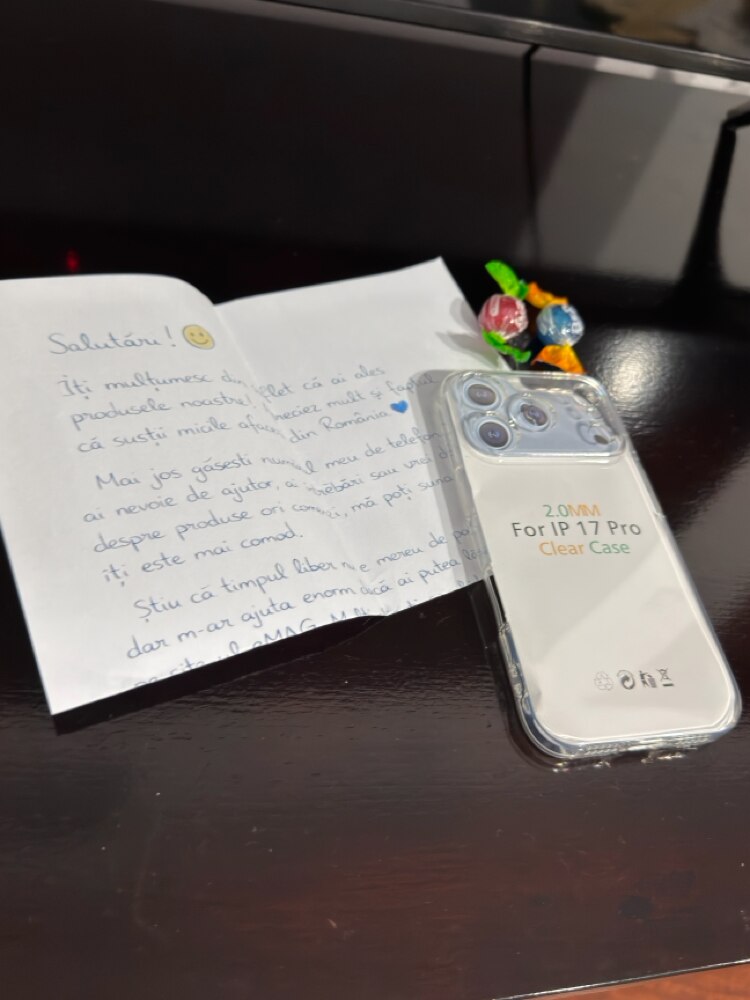 Salutări!
Îți mulțumesc din suflet că ai ales
produsele noastre! Apreciez mult și faptul
că susții micile afaceri din România
Mai jos găsești numărul meu de telefon
ai nevoie de ajutor, ai întrebări sau vrei
despre produse ori comenzi, mă poți suna
îți este mai comod.
Știu că timpul liber nu e mereu de
dar m-ar ajuta enorm dacă ai putea
pe site-ul eMAG.
2.0MM
For IP 17 Pro
Clear Case